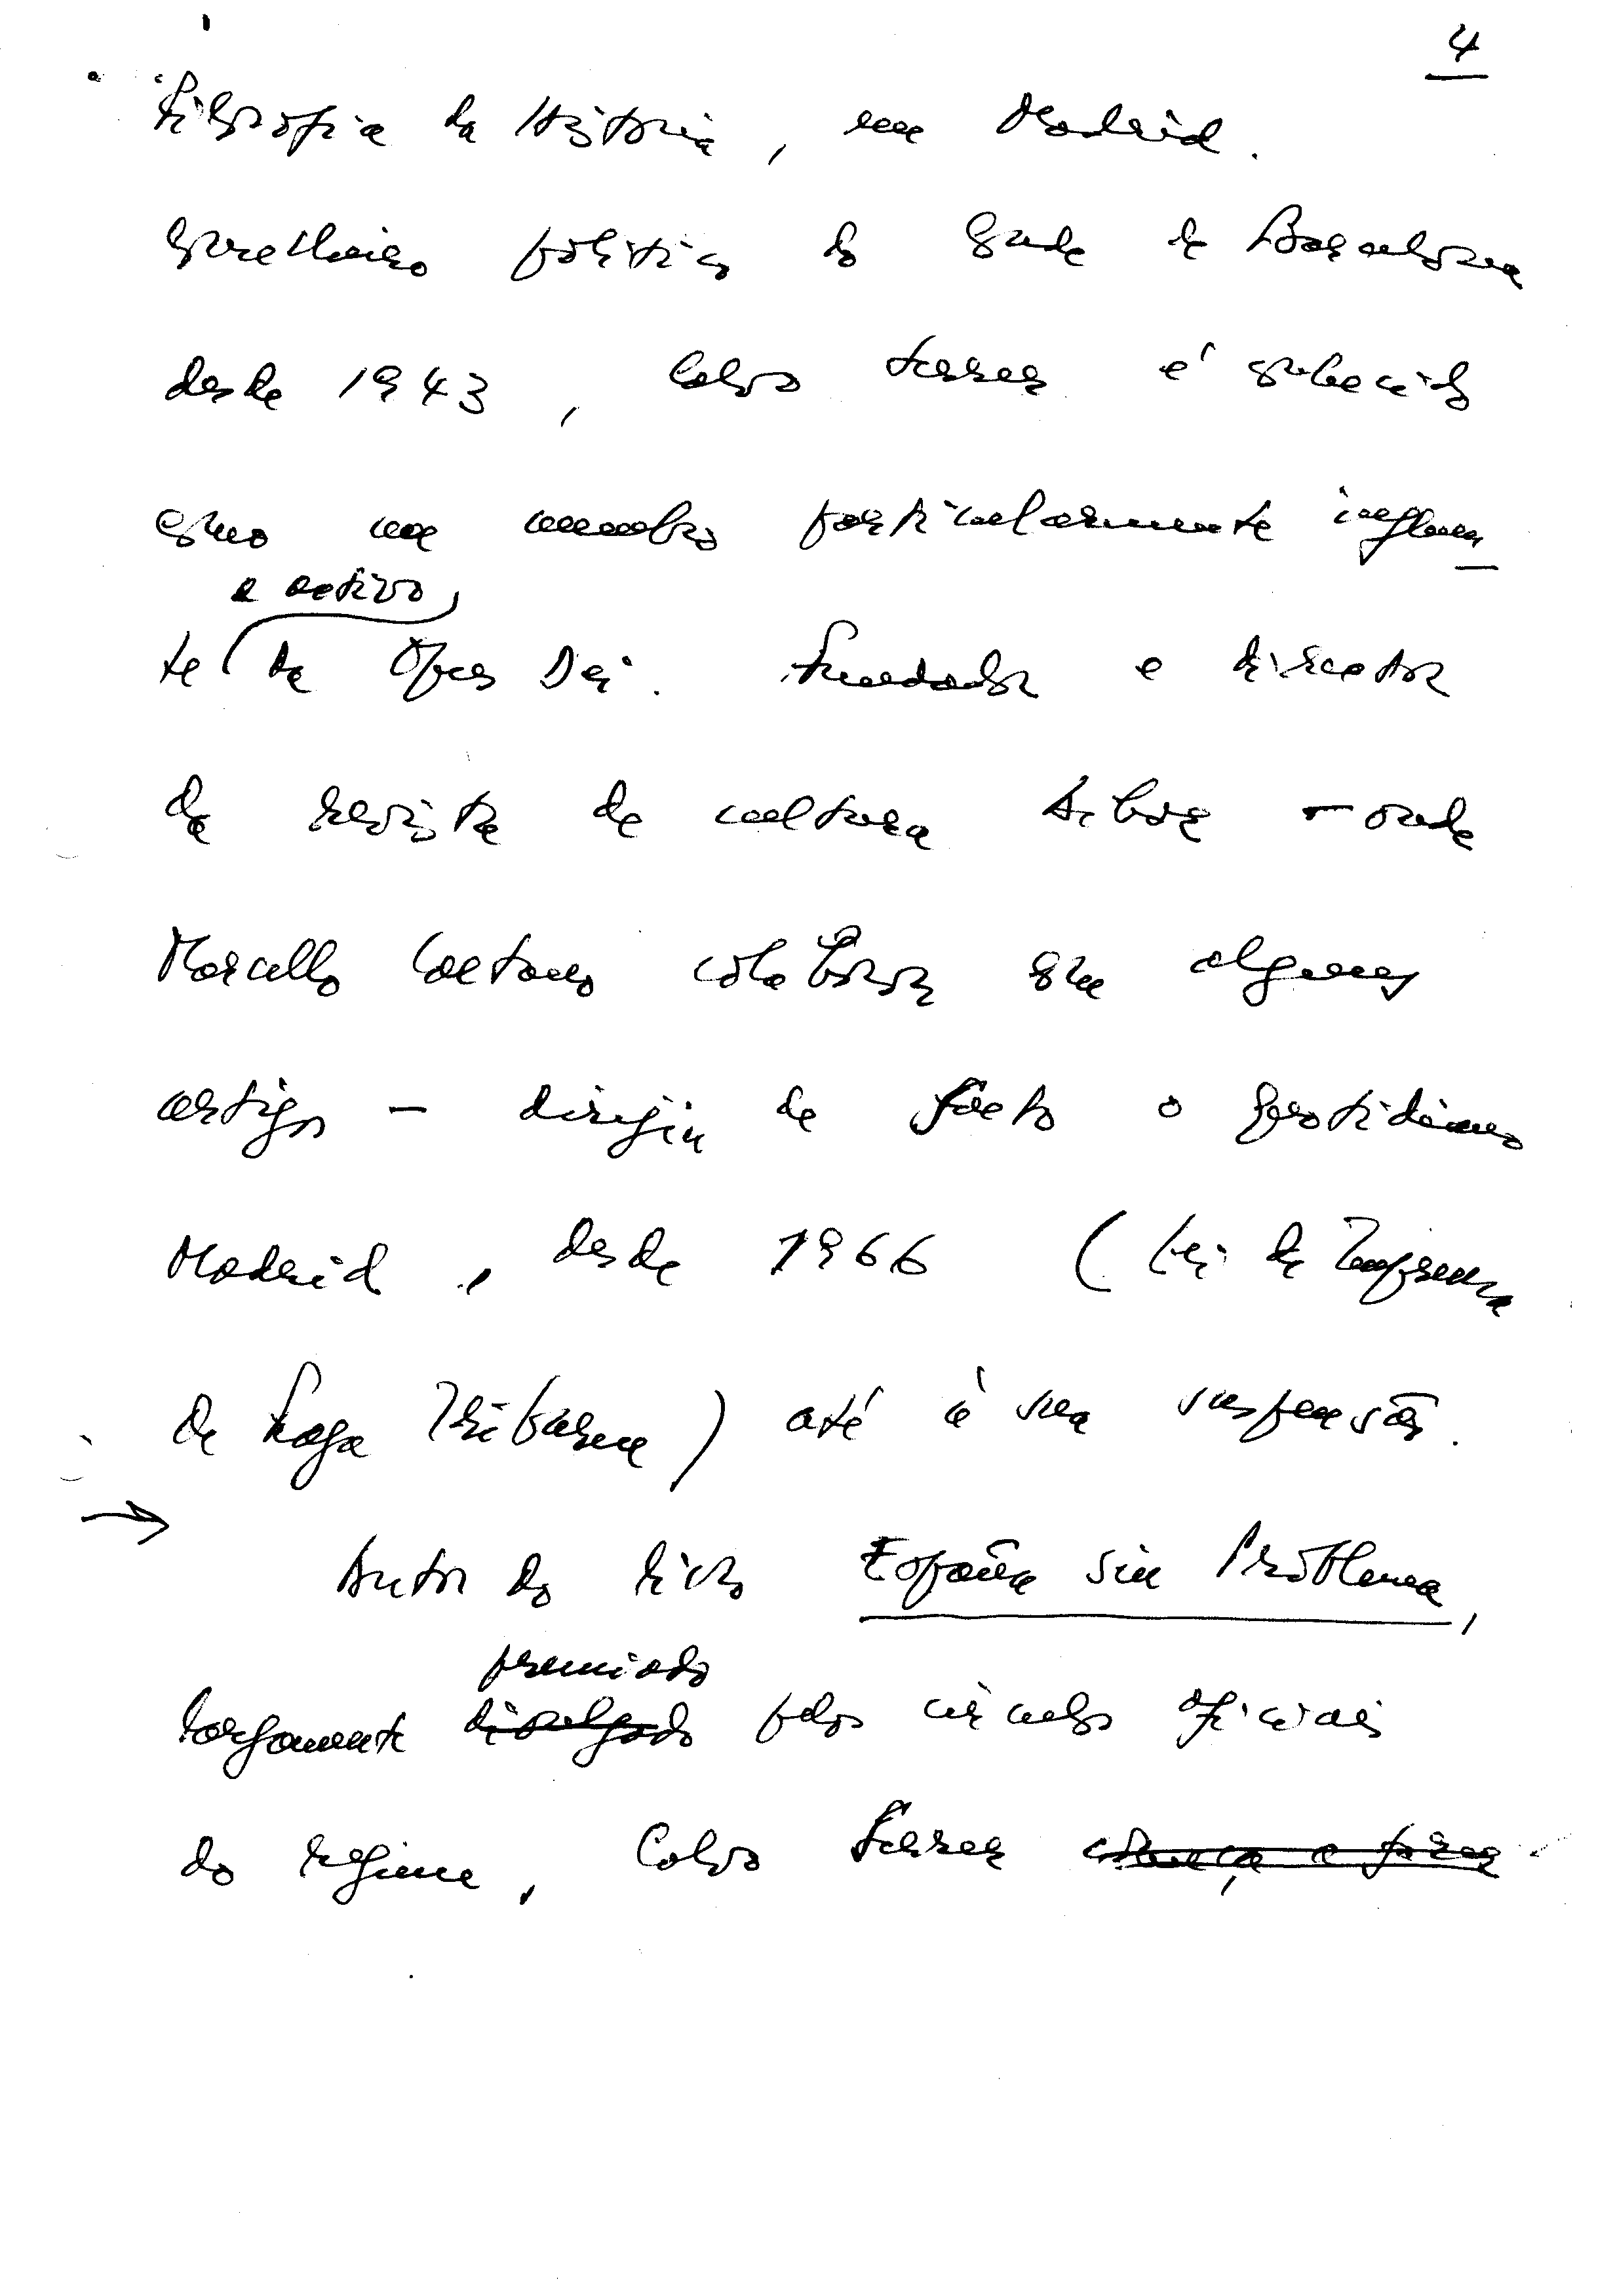 4
Filosofia da História, em Madrid.
Conselheiro político do Conde de Barcelona
desde 1943, Calvo Serer é conhecido
como um membro particularmente influen
e activo
te da Opus Dei. Fundador e director
da revista de cultura Arbor — onde
Marcello Caetano colaborou com alguns
artigos — dirigiu de facto o quotidiano
Madrid, desde 1966 (Lei de Imprensa
de Fraga Iribarne) até à sua suspensão.
→
Autor do livro España sin Problema,
premiado
largamente divulgado pelos círculos oficiais
do regime, Calvo Serer começa a